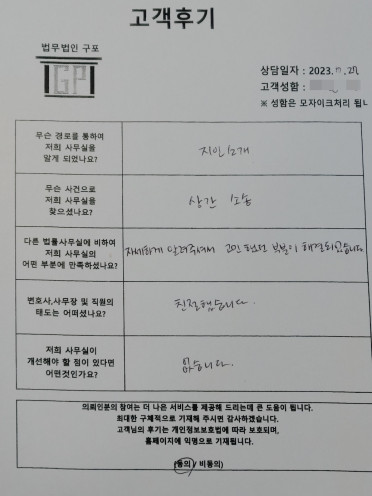 고객후기
법무법인 구포
GP
상담일자 : 2023.
고객성함 :
※ 성함은 모자이크처리 됩니
무슨 경로를 통하여
저희 사무실을
알게 되었나요?
지인소개
무슨 사건으로
저희 사무실을
찾으셨나요?
상간 소송
다른 법률사무실에 비하여
저희 사무실의
어떤 부분에 만족하셨나요?
자세하게 알려주셔서 고민했던 부분이 해결되었습니다
변호사,사무장 및 직원의
태도는 어떠셨나요?
친절했습니다.
저희 사무실이
개선해야 할 점이 있다면
어떤것인가요?
없습니다.
의뢰인분의 참여는 더 나은 서비스를 제공해 드리는데 큰 도움이 됩니다.
최대한 구체적으로 기재해 주시면 감사하겠습니다.
고객님의 후기는 개인정보보호법에 따라 보호되며,
홈페이지에 익명으로 기재됩니다.
(동의 / 비동의)